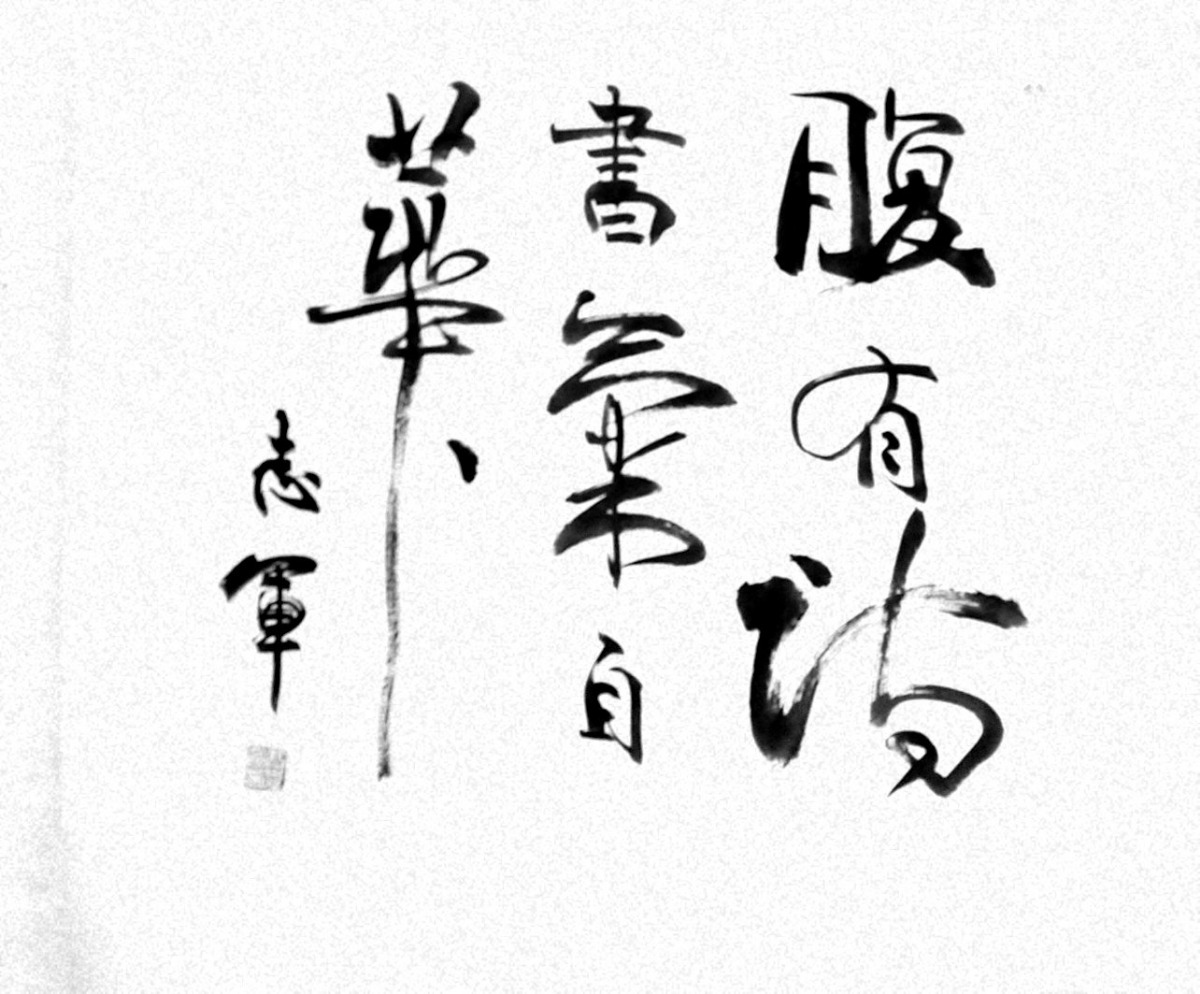 腹有詩
書氣自
華
志軍